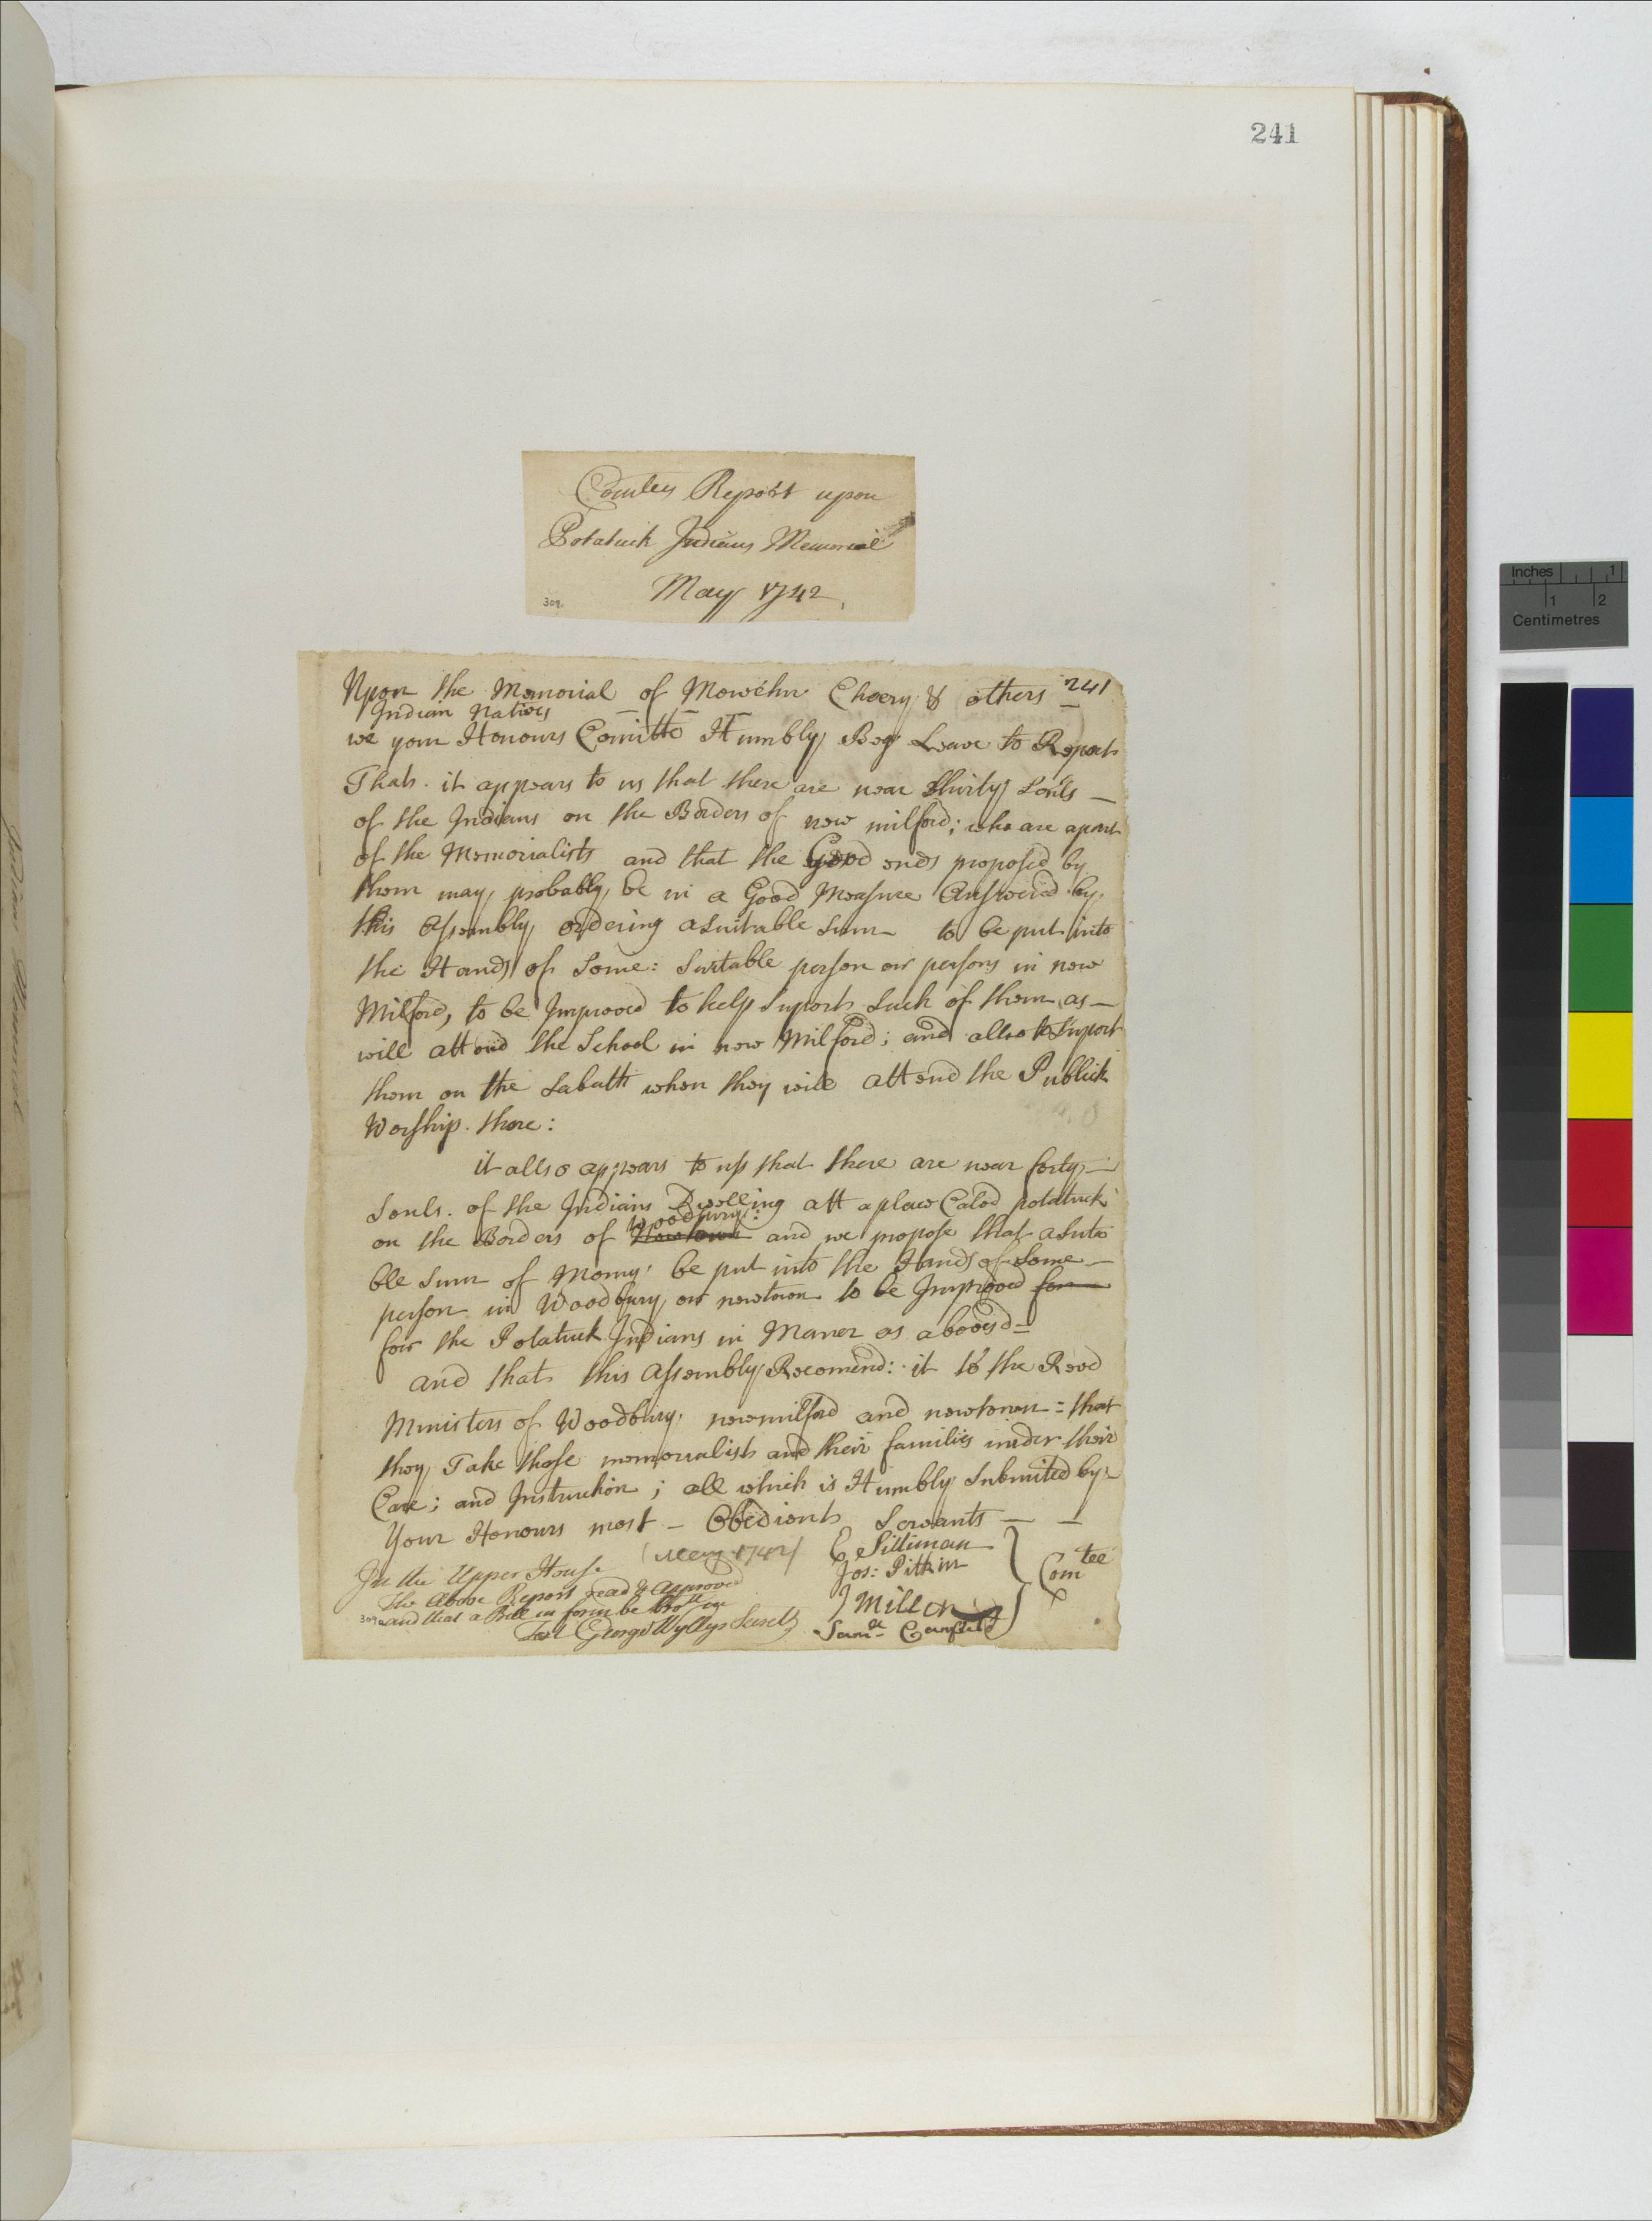 241
Comtees Report upon
Potatuck Indians Memorial
May 1742
309.
Upon the Memorial of Mowehu Cheery & others 241
Indian Natives
we your Honours Comitte Humbly Beg Leave to Report
That it appears to us that there are near thirty Souls
of the Indians on the Borders of new milford; who are apart
of the Memorialists and that the Good ends proposed by
them may, probably, be in a Good Measure Answered by
this Assembly ordering a suitable Sum to be put into
the Hands of Some: Suitable person or persons in new
Milford, to be Improved to help Suport Such of them as
will attend the School in new Milford; and allso to Suport
them on the Sabath when they will attend the Publick
Worship there:
it allso appears to us that there are near forty
Souls of the Indians Dwelling att a place Caled potatuck
Woodbury:
on the Borders of Newtown and we propose that a Suta
ble Sum of Mony be put into the Hands of Some
person in Woodbury or newtown to be Improved for
for the Potatuck Indians in Maner as abovesd
and that this Assembly Recomend: it to the Revd
Ministers of Woodbury, newmilford and newtown: that
they Take those memorialists and their families under their
Care; and Instruction; all which is Humbly Submited by
Your Honours most Obedient Servants
(May 1742)
E Silliman
Jos: Pitkin
J Miller
Samll Canfield
Comtee
In the Upper House
The Above Report read & Approved
and that a Bill in form be brot in
Test George Wyllys Secrety
309a
Inches 1
1 2
Centimetres